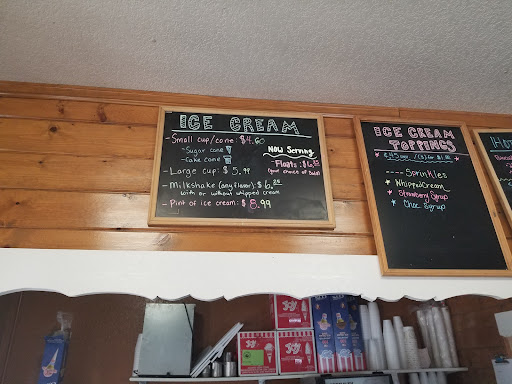 ICE CREAM
- Small cup/cone: $4.60
- Sugar cone
- Cake cone
- Large cup: $5.99
- Milkshake (any flavor): $6.25
with or without whipped cream
- Pint of ice cream: $8.99
NOW Serving
Floats: $6
(your choice of Soda)
ICE CREAM
TOPPINGS
for $1.
Sprinkles
Whipped Cream
Strawberry Syrup
Choc Syrup
JOY
JOY